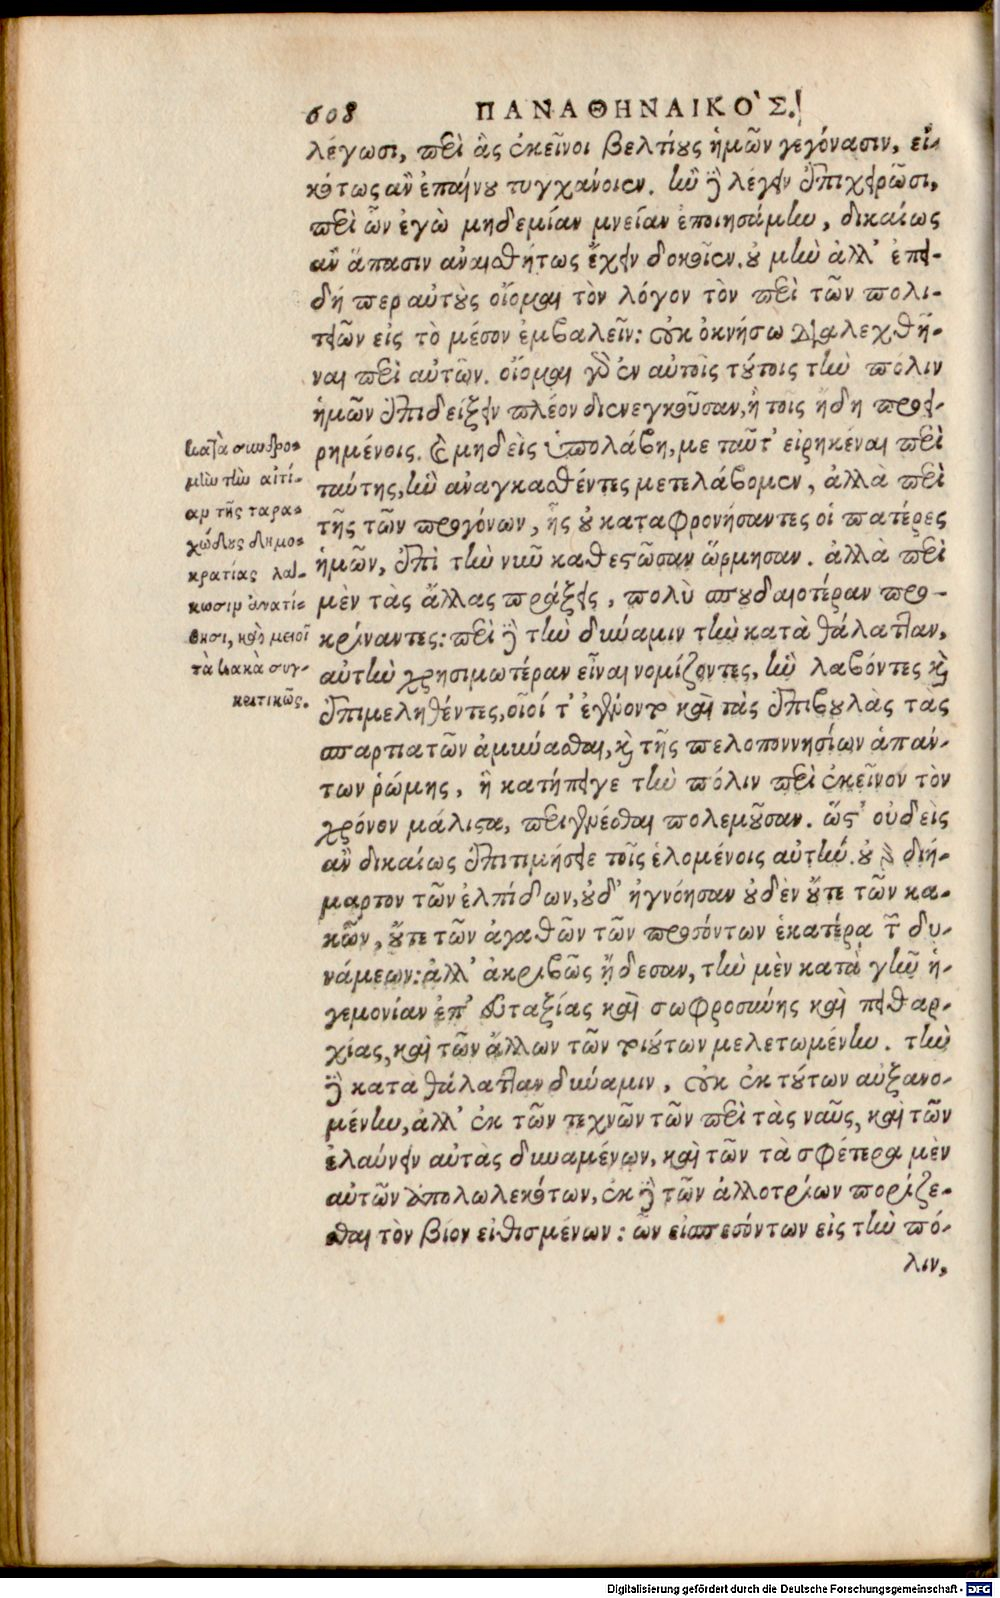 608 ΠΑΝΑΘΗΝΑΙΚΟ῾Σ.
λέγωσι, περὶ ἃς ἐκεῖνοι βελτίους ἡμῶν γεγόνασιν, εἰ-
κότως ἂν ἐπαίνου τυγχάνοιεν. ἢν δὲ λέγειν ἐπιχειρῶσι,
περὶ ὧν ἐγὼ μηδεμίαν μνείαν ἐποιησάμην, δικαίως
ἂν ἅπασιν ἀναισθήτως ἔχειν δοκοῖεν. οὐ μὴν ἀλλ' ἐπει-
δή περ αὐτοὺς οἴομαι τὸν λόγον τὸν περὶ τῶν πολι-
τειῶν εἰς τὸ μέσον ἐμβαλεῖν: οὐκ ὀκνήσω διαλεχθῆ-
ναι περὶ αὐτῶν. οἴομαι γὰρ ἐν αὐτοῖς τούτοις τὴν πόλιν
ἡμῶν ἐπιδείξειν πλέον διενεγκοῦσαν, ἢ τοῖς ἤδη προει-
ρημένοις. καὶ μηδεὶς ὑπολάβῃ, με ταῦτ' εἰρηκέναι περὶ
ταύτης, ἣν ἀναγκασθέντες μετελάβομεν, ἀλλὰ περὶ
τῆς τῶν προγόνων, ἧς οὐ καταφρονήσαντες οἱ πατέρες
ἡμῶν, ἐπὶ τὴν νῦν καθεστῶσαν ὥρμησαν. ἀλλὰ περὶ
μὲν τας ἄλλας πράξεις, πολὺ σπουδαιοτέραν προ-
κρίναντες: περὶ δὲ τὴν δύναμιν τὴν κατὰ θάλατταν,
αὐτὴν χρησιμωτέραν εἶναι νομίζοντες, ἣν λαβόντες καὶ
ἐπιμεληθέντες, οἷοί τ' ἐγένοντο καὶ τὰς ἐπιβουλὰς τας
σπαρτιατῶν ἀμύνασθαι, καὶ τῆς πελοποννησίων ἁπάν-
των ῥώμης, ἣ κατήπειγε τὴν πόλιν περὶ ἐκεῖνον τὸν
χρόνον μάλιστα, περιγενέσθαι πολεμοῦσαν. ὥστ' οὐδεὶς
ἂν δικαίως ἐπιτιμήσειε τοῖς ἑλομένοις αὐτήν. οὐ γὰρ διή-
μαρτον τῶν ἐλπίδων, οὐδ' ἠγνόησαν οὐδὲν οὔτε τῶν κα-
κῶν, οὔτε τῶν ἀγαθῶν τῶν προσόντων ἑκατέρᾳ τῶν δυ-
νάμεων: ἀλλ' ἀκριβῶς ᾔδεσαν, τὴν μὲν κατὰ γῆν ἡ-
γεμονίαν ἐπ' εὐταξίας καὶ σωφροσύνης καὶ πειθαρ-
χίας, καὶ τῶν ἄλλων τῶν τοιούτων μελετωμένην. τὴν
δὲ κατὰ θάλατταν δύναμιν, οὐκ ἐκ τούτων αὐξανο-
μένην, ἀλλ' ἐκ τῶν τεχνῶν τῶν περὶ τὰς ναῦς, καὶ τῶν
ἐλαύνειν αὐτὰς δυναμένων, καὶ τῶν τὰ σφέτερα μὲν
αὐτῶν ἀπολωλεκότων, ἐκ δὲ τῶν ἀλλοτρίων πορίζε-
σθαι τὸν βίον εἰθισμένων: ὧν εἰσπεσόντων εἰς τὴν πό-
λιν,
κατὰ συνδρο-
μὴν τὴν αἰτί-
αν τῆς ταρα-
χώδους δημο-
κρατίας λα-
κωσιν ἀνατί-
θησι, καὶ μειοῖ
τὰ κακὰ συγ-
κριτικῶς.
Digitalisierung gefördert durch die Deutsche Forschungsgemeinschaft - DFG